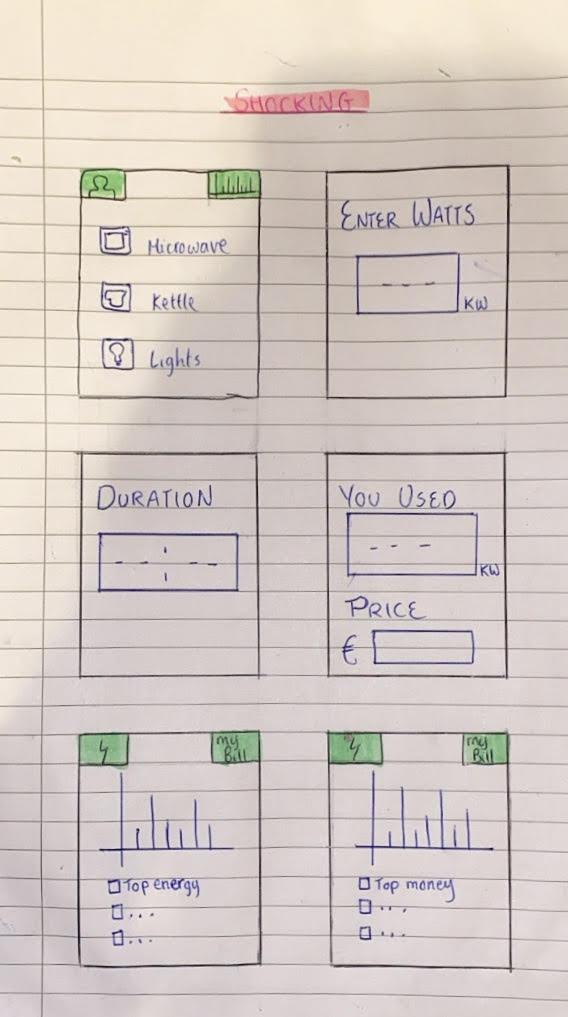 SHOCKING
Microwave
Kettle
Lights
ENTER WATTS
- - -
KW
DURATION
- - : - -
YOU USED
- - -
KW
PRICE
€
my
Bill
Top energy
...
...
my
Bill
Top money
...
...